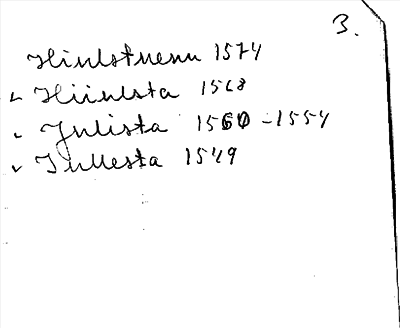 3.
Hiulstuenn 1574
Hiiulsta 1568
Julista 1560-1554
Jullesta 1549